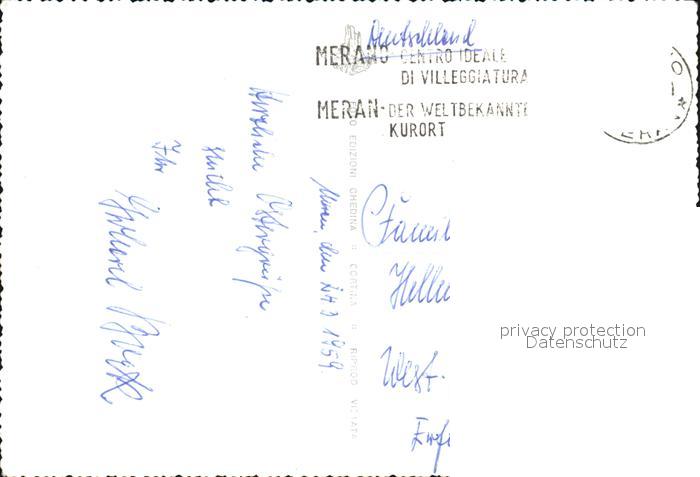 Deutschland
MERANO CENTRO IDEALE
DI VILLEGGIATURA
MERAN-DER WELTBEKANNTE
KURORT
Meran, den 1959.
Herzliche Ostergrüße
sendet
Ihr
FOTO EDIZIONI GHEDINA CORTINA RIPROD VIETATA
Famil
Helle
West-
privacy protection
Datenschutz